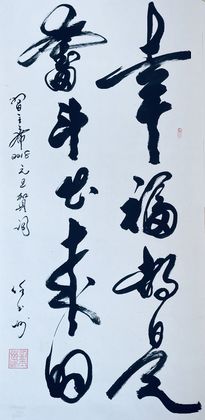 幸福都是
奋斗出来的
習主席2018元旦賀詞